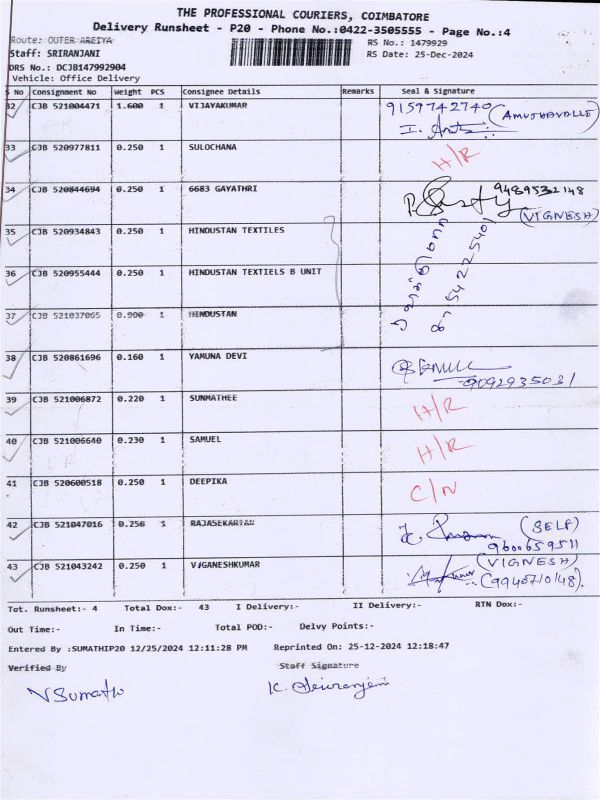 THE PROFESSIONAL COURIERS, COIMBATORE
Delivery Runsheet - P20 - Phone No.:0422-3505555 - Page No.:4
Route: OUTER AREIYA
RS No.: 1479929
Staff: SRIRANJANI
RS Date: 25-Dec-2024
DRS No.: DCJB147992904
Vehicle: Office Delivery
S No Consignment No Weight PCS Consignee Details Remarks Seal & Signature
32 CJB 521004471 1.600 1 VIJAYAKUMAR 9159742740 (AMUTHAVALLI)
33 CJB 520977811 0.250 1 SULOCHANA H/R
34 CJB 520844694 0.250 1 6683 GAYATHRI 9489532148
(VIGNESH)
35 CJB 520934843 0.250 1 HINDUSTAN TEXTILES
36 CJB 520955444 0.250 1 HINDUSTAN TEXTIELS B UNIT
37 CJB 521037065 0.900 1 HINDUSTAN
38 CJB 520861696 0.160 1 YAMUNA DEVI
9092935031
39 CJB 521006872 0.220 1 SUNMATHEE H/R
40 CJB 521006640 0.230 1 SAMUEL H/R
41 CJB 520600518 0.250 1 DEEPIKA C/N
42 CJB 521047016 0.250 1 RAJASEKARTAN (SELF)
9600659511
43 CJB 521043242 0.250 1 VIGANESHKUMAR (VIGNESH)
(9940710148).
Tot. Runsheet:- 4 Total Dox:- 43 I Delivery:- II Delivery:- RTN Dox:-
Out Time:- In Time:- Total POD:- Delvy Points:-
Entered By :SUMATHIP20 12/25/2024 12:11:28 PM Reprinted On: 25-12-2024 12:18:47
Verified By Staff Signature
V Sumathi K. Sriranjani